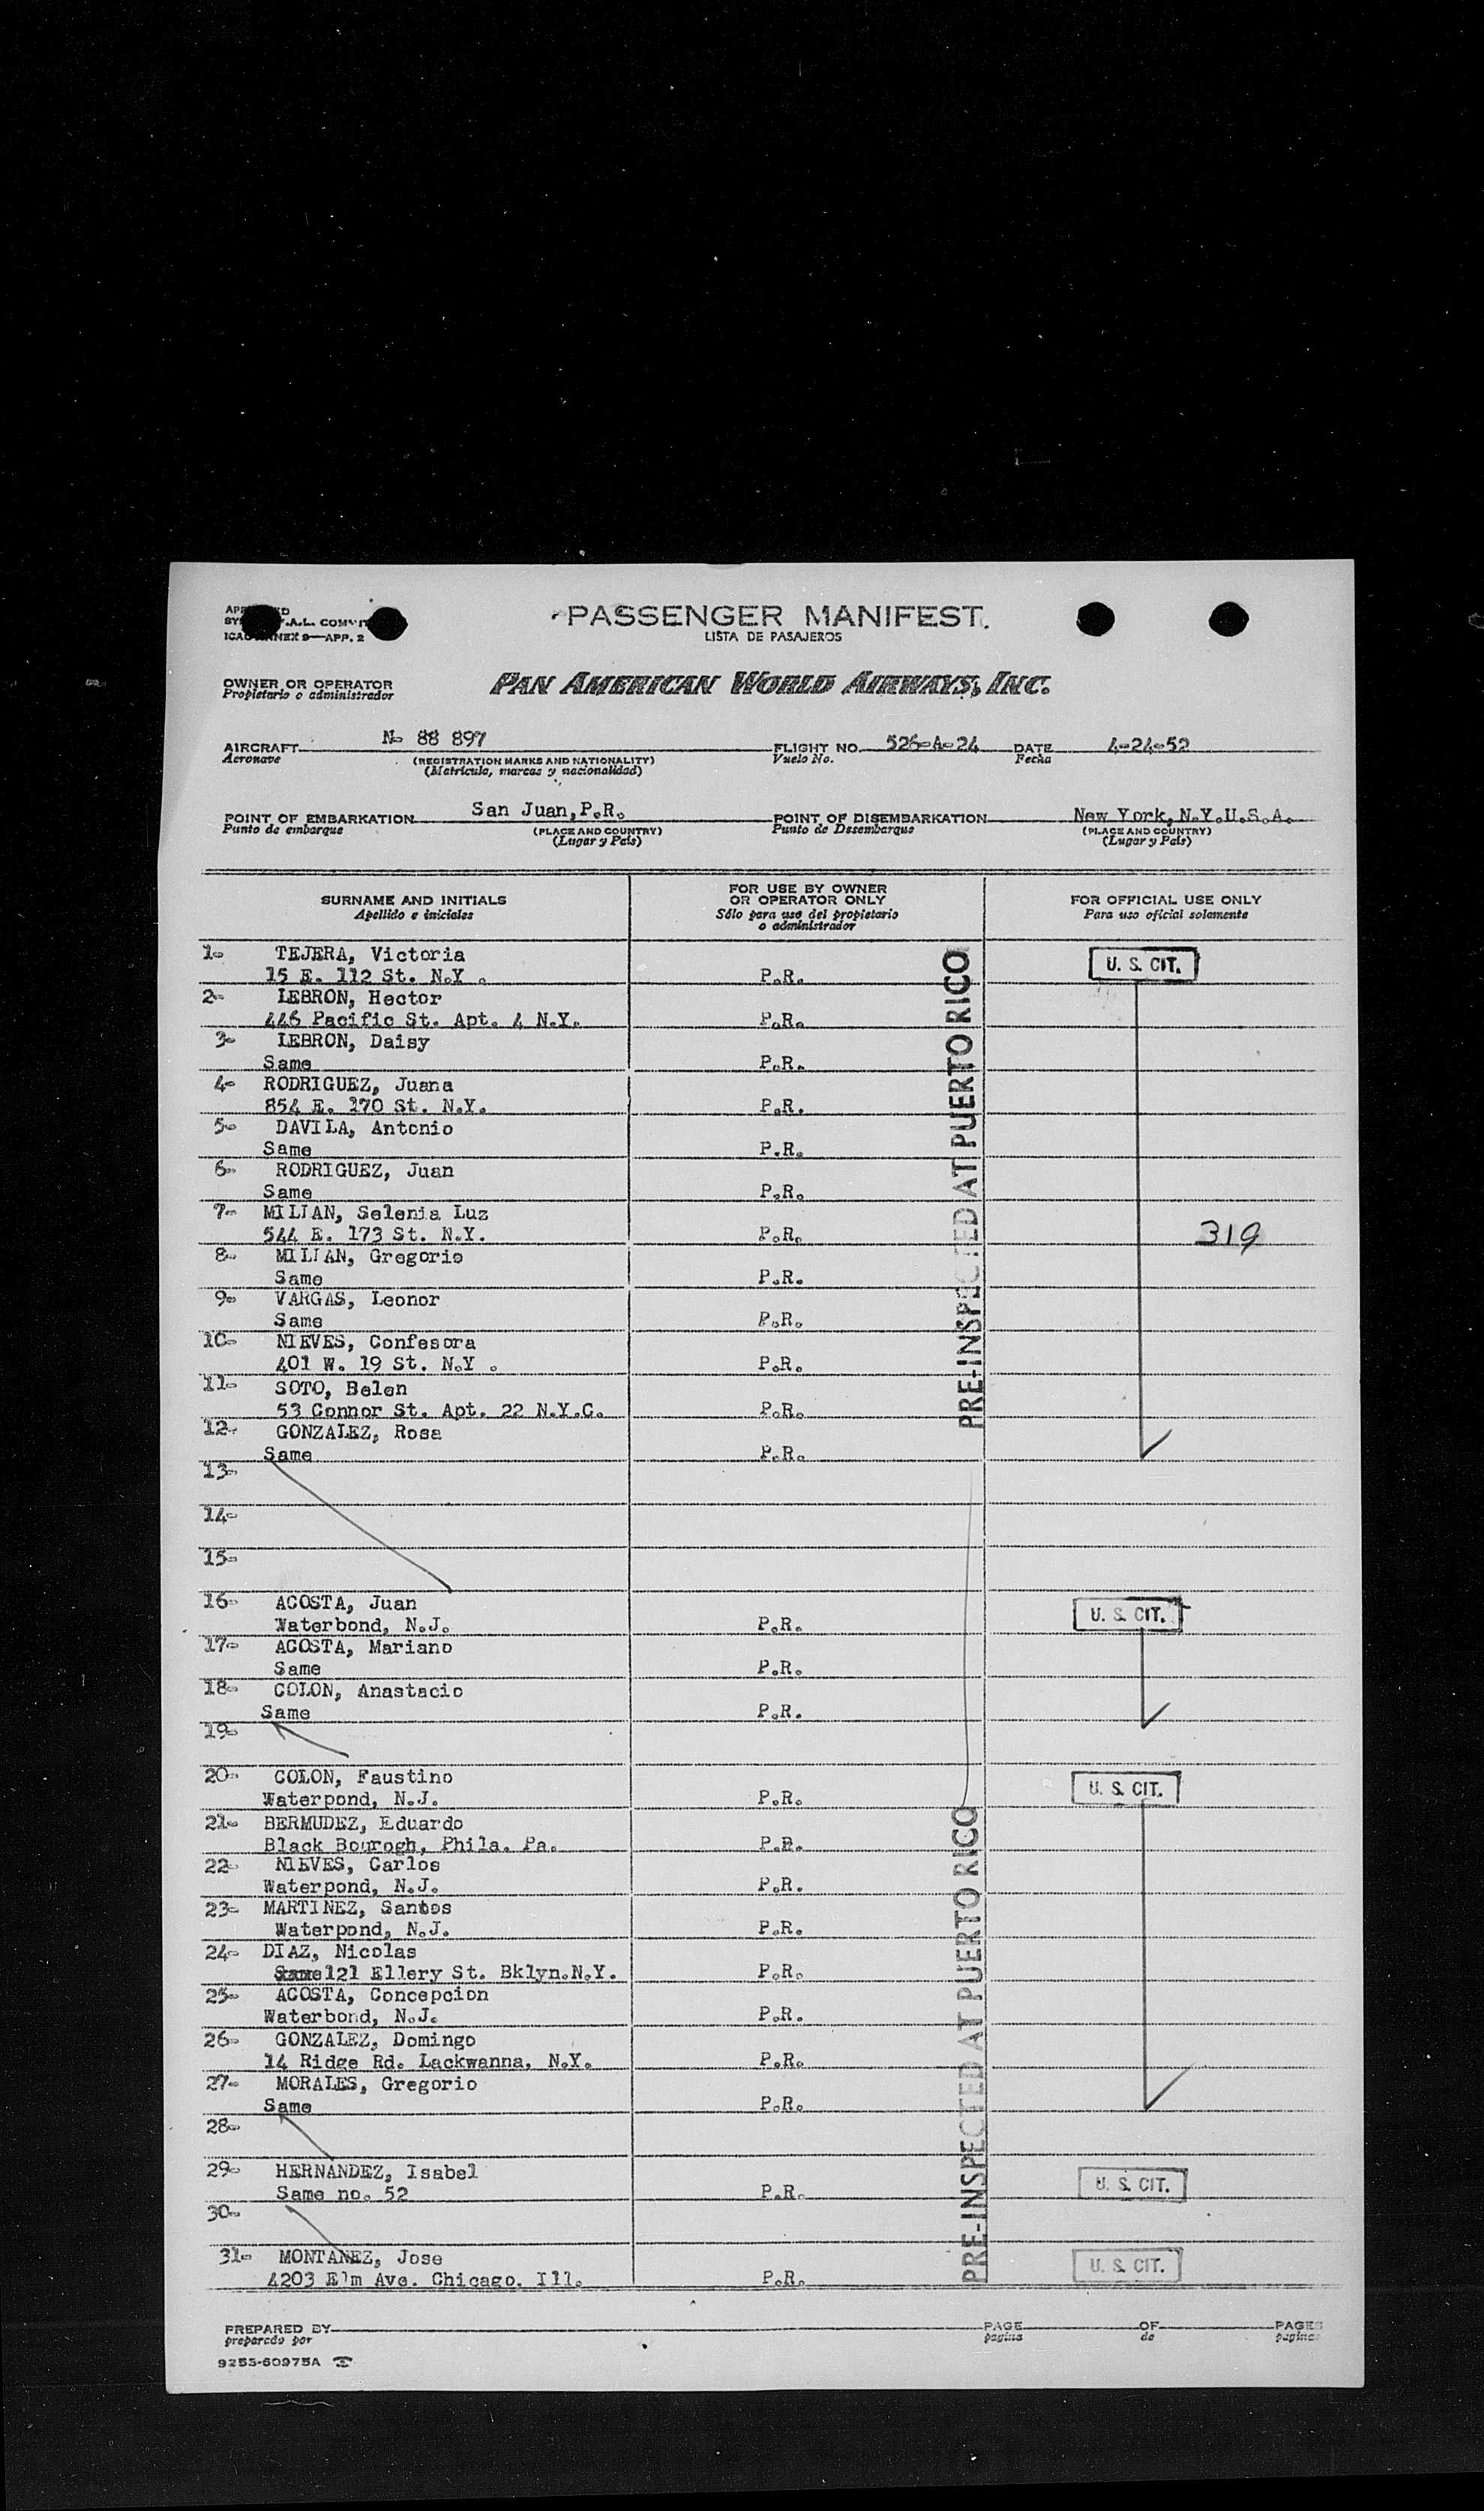 PASSENGER MANIFEST.
LISTA DE PASAJEROS
ICAO ANNEX 9—APP. 2
OWNER OR OPERATOR
Propietario o administrador
PAN AMERICAN WORLD AIRWAYS, INC.
AIRCRAFT N- 88 897 FLIGHT NO. 526-A-24 DATE 4-24-52
Aeronave (REGISTRATION MARKS AND NATIONALITY) Vuelo No. Fecha
(Matrícula, marcas y nacionalidad)
POINT OF EMBARKATION San Juan,P.R. POINT OF DISEMBARKATION New York, N.Y.U.S.A.
Punto de embarque (PLACE AND COUNTRY) Punto de Desembarque (PLACE AND COUNTRY)
(Lugar y País) (Lugar y País)
SURNAME AND INITIALS
Apellido e iniciales
FOR USE BY OWNER
OR OPERATOR ONLY
Sólo para uso del propietario
o administrador
FOR OFFICIAL USE ONLY
Para uso oficial solamente
1- TEJERA, Victoria U. S. CIT.
15 E. 112 St. N.Y . P.R.
2- LEBRON, Hector
446 Pacific St. Apt. 4 N.Y. P.R.
3- LEBRON, Daisy
Same P.R.
4- RODRIGUEZ, Juana
854 E. 170 St. N.Y. P.R.
5- DAVILA, Antonio
Same P.R.
6- RODRIGUEZ, Juan
Same P.R.
7- MILIAN, Selenia Luz
544 E. 173 St. N.Y. P.R. 319
8- MILIAN, Gregorio
Same P.R.
9- VARGAS, Leonor
Same P.R.
10- NIEVES, Confesora
401 W. 19 St. N.Y . P.R.
11- SOTO, Belen
53 Connor St. Apt. 22 N.Y.C. P.R.
12- GONZALEZ, Rosa
Same P.R.
PRE-INSPECTED AT PUERTO RICO
13-
14-
15-
16- ACOSTA, Juan U. S. CIT.
Waterbond, N.J. P.R.
17- ACOSTA, Mariano
Same P.R.
18- COLON, Anastacio
Same P.R.
19-
20- COLON, Faustino U. S. CIT.
Waterpond, N.J. P.R.
21- BERMUDEZ, Eduardo
Black Bourogh, Phila. Pa. P.R.
22- NIEVES, Carlos
Waterpond, N.J. P.R.
23- MARTINEZ, Santos
Waterpond, N.J. P.R.
24- DIAZ, Nicolas
Same121 Ellery St. Bklyn.N.Y. P.R.
25- ACOSTA, Concepcion
Waterbond, N.J. P.R.
26- GONZALEZ, Domingo
14 Ridge Rd. Lackwanna, N.Y. P.R.
27- MORALES, Gregorio
Same P.R.
28-
29- HERNANDEZ, Isabel
Same no. 52 P.R. U. S. CIT.
30-
31- MONTANEZ, Jose U. S. CIT.
4203 Elm Ave. Chicago, Ill. P.R.
PRE-INSPECTED AT PUERTO RICO
PREPARED BY PAGE OF PAGES
preparado por pagina de paginas
9253-60975A